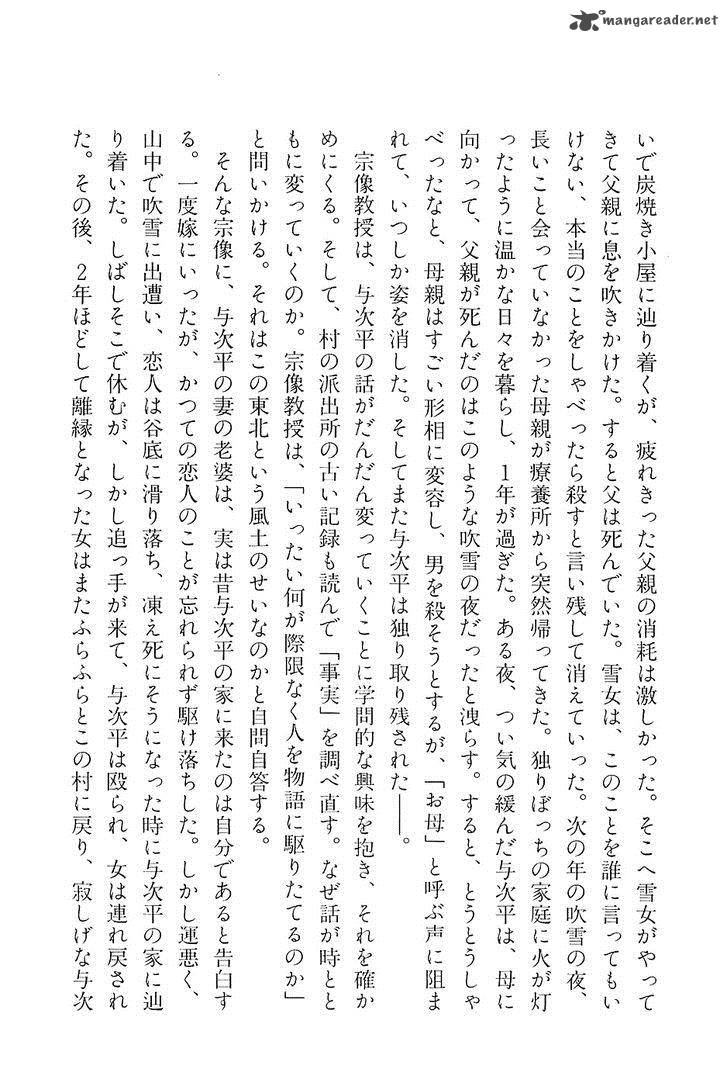 mangareader.net
いで炭焼き小屋に辿り着くが、疲れきった父親の消耗は激しかった。そこへ雪女がやって
きて父親に息を吹きかけた。すると父は死んでいた。雪女は、このことを誰に言ってもい
けない、本当のことをしゃべったら殺すと言い残して消えていった。次の年の吹雪の夜、
長いこと会っていなかった母親が療養所から突然帰ってきた。独りぼっちの家庭に火が灯
ったように温かな日々を暮らし、1年が過ぎた。ある夜、つい気の緩んだ与次平は、母に
向かって、父親が死んだのはこのような吹雪の夜だったと洩らす。すると、とうとうしゃ
べったなと、母親はすごい形相に変容し、男を殺そうとするが、「お母」と呼ぶ声に阻ま
れて、いつしか姿を消した。そしてまた与次平は独り取り残された――。
宗像教授は、与次平の話がだんだん変っていくことに学問的な興味を抱き、それを確か
めにくる。そして、村の派出所の古い記録も読んで「事実」を調べ直す。なぜ話が時とと
もに変っていくのか。宗像教授は、「いったい何が際限なく人を物語に駆りたてるのか」
と問いかける。それはこの東北という風土のせいなのかと自問自答する。
そんな宗像に、与次平の妻の老婆は、実は昔与次平の家に来たのは自分であると告白す
る。一度嫁にいったが、かつての恋人のことが忘れられず駆け落ちした。しかし運悪く、
山中で吹雪に出遭い、恋人は谷底に滑り落ち、凍え死にそうになった時に与次平の家に辿
り着いた。しばしそこで休むが、しかし追っ手が来て、与次平は殴られ、女は連れ戻され
た。その後、2年ほどして離縁となった女はまたふらふらとこの村に戻り、寂しげな与次